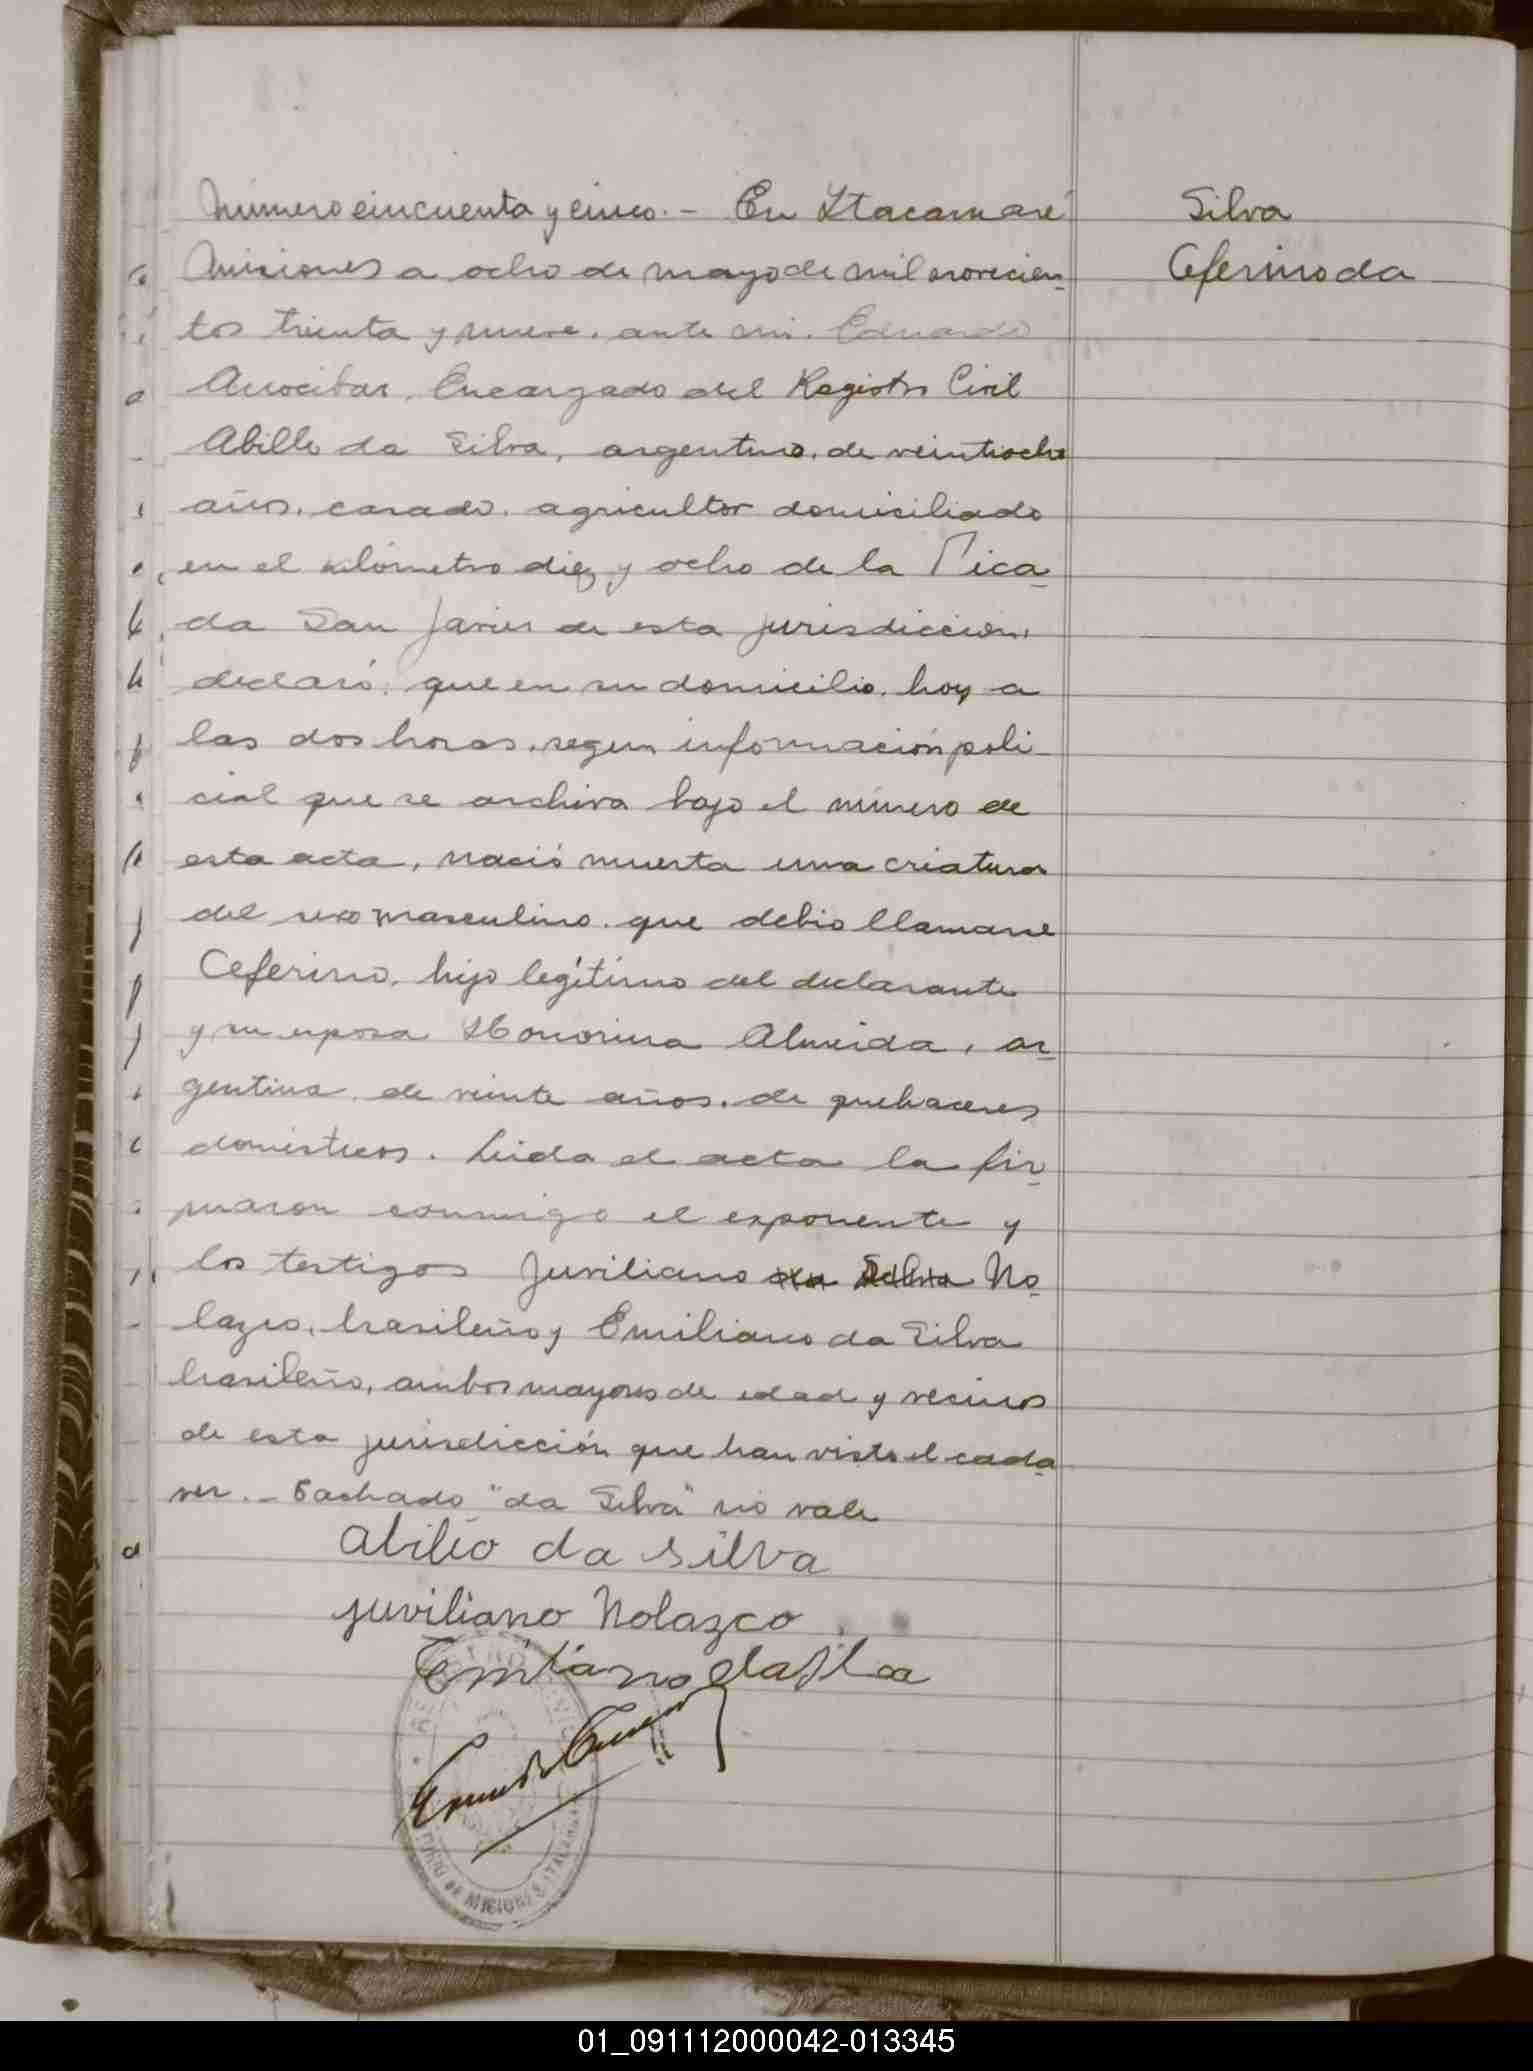 Número cincuenta y cinco.- En Ytacamaré
Silva
Ceferino da
Misiones a ocho de mayo de mil novecien-
tos treinta y nueve, ante mi, Eduardo
Arrocibar, Encargado del Registro Civil
Abillo da Silva, argentino, de veintiocho
años, casado, agricultor domiciliado
en el kilómetro diez y ocho de la Pica-
da San Javier de esta jurisdicción,
declaró: que en su domicilio, hoy a
las dos horas, segun información poli-
cial que se archiva bajo el número de
esta acta, nació muerta una criatura
del sexo masculino que debio llamarse
Ceferino, hijo legítimo del declarante
y su esposa Honorina Almeida, ar-
gentina de veinte años, de quehaceres
domésticos. Leida el acta la fir-
maron conmigo el exponente y
los testigos Juviliano da Silva No-
lazco, brasileño y Emiliano da Silva
brasileño, ambos mayores de edad y vecinos
de esta jurisdicción que han visto el cada-
ver.- Tachado "da Silva" no vale
Abilio da silva
juviliano Nolazco
DE MISIONES
01_091112000042-013345